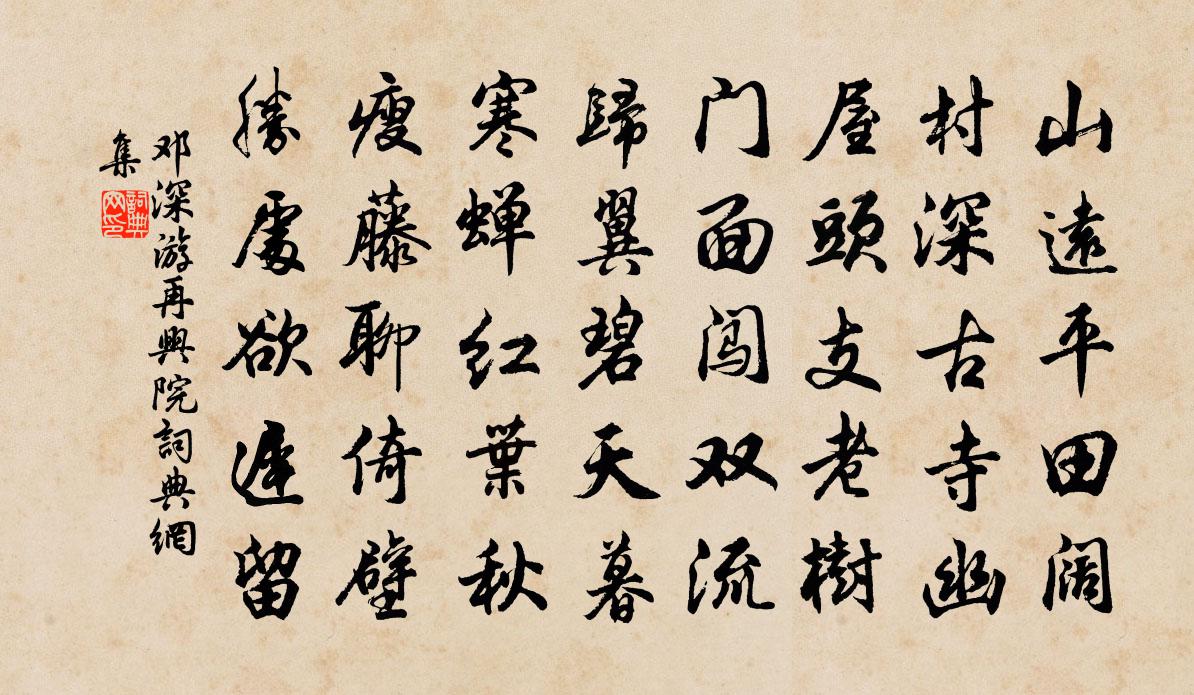 山遠平田阔
村深古寺幽
屋頭支老樹
门面闯双流
歸翼碧天暮
寒蝉红葉秋
瘦藤聊倚壁
勝處欲遲留
邓深游再興院詞典網
集
詞典网印